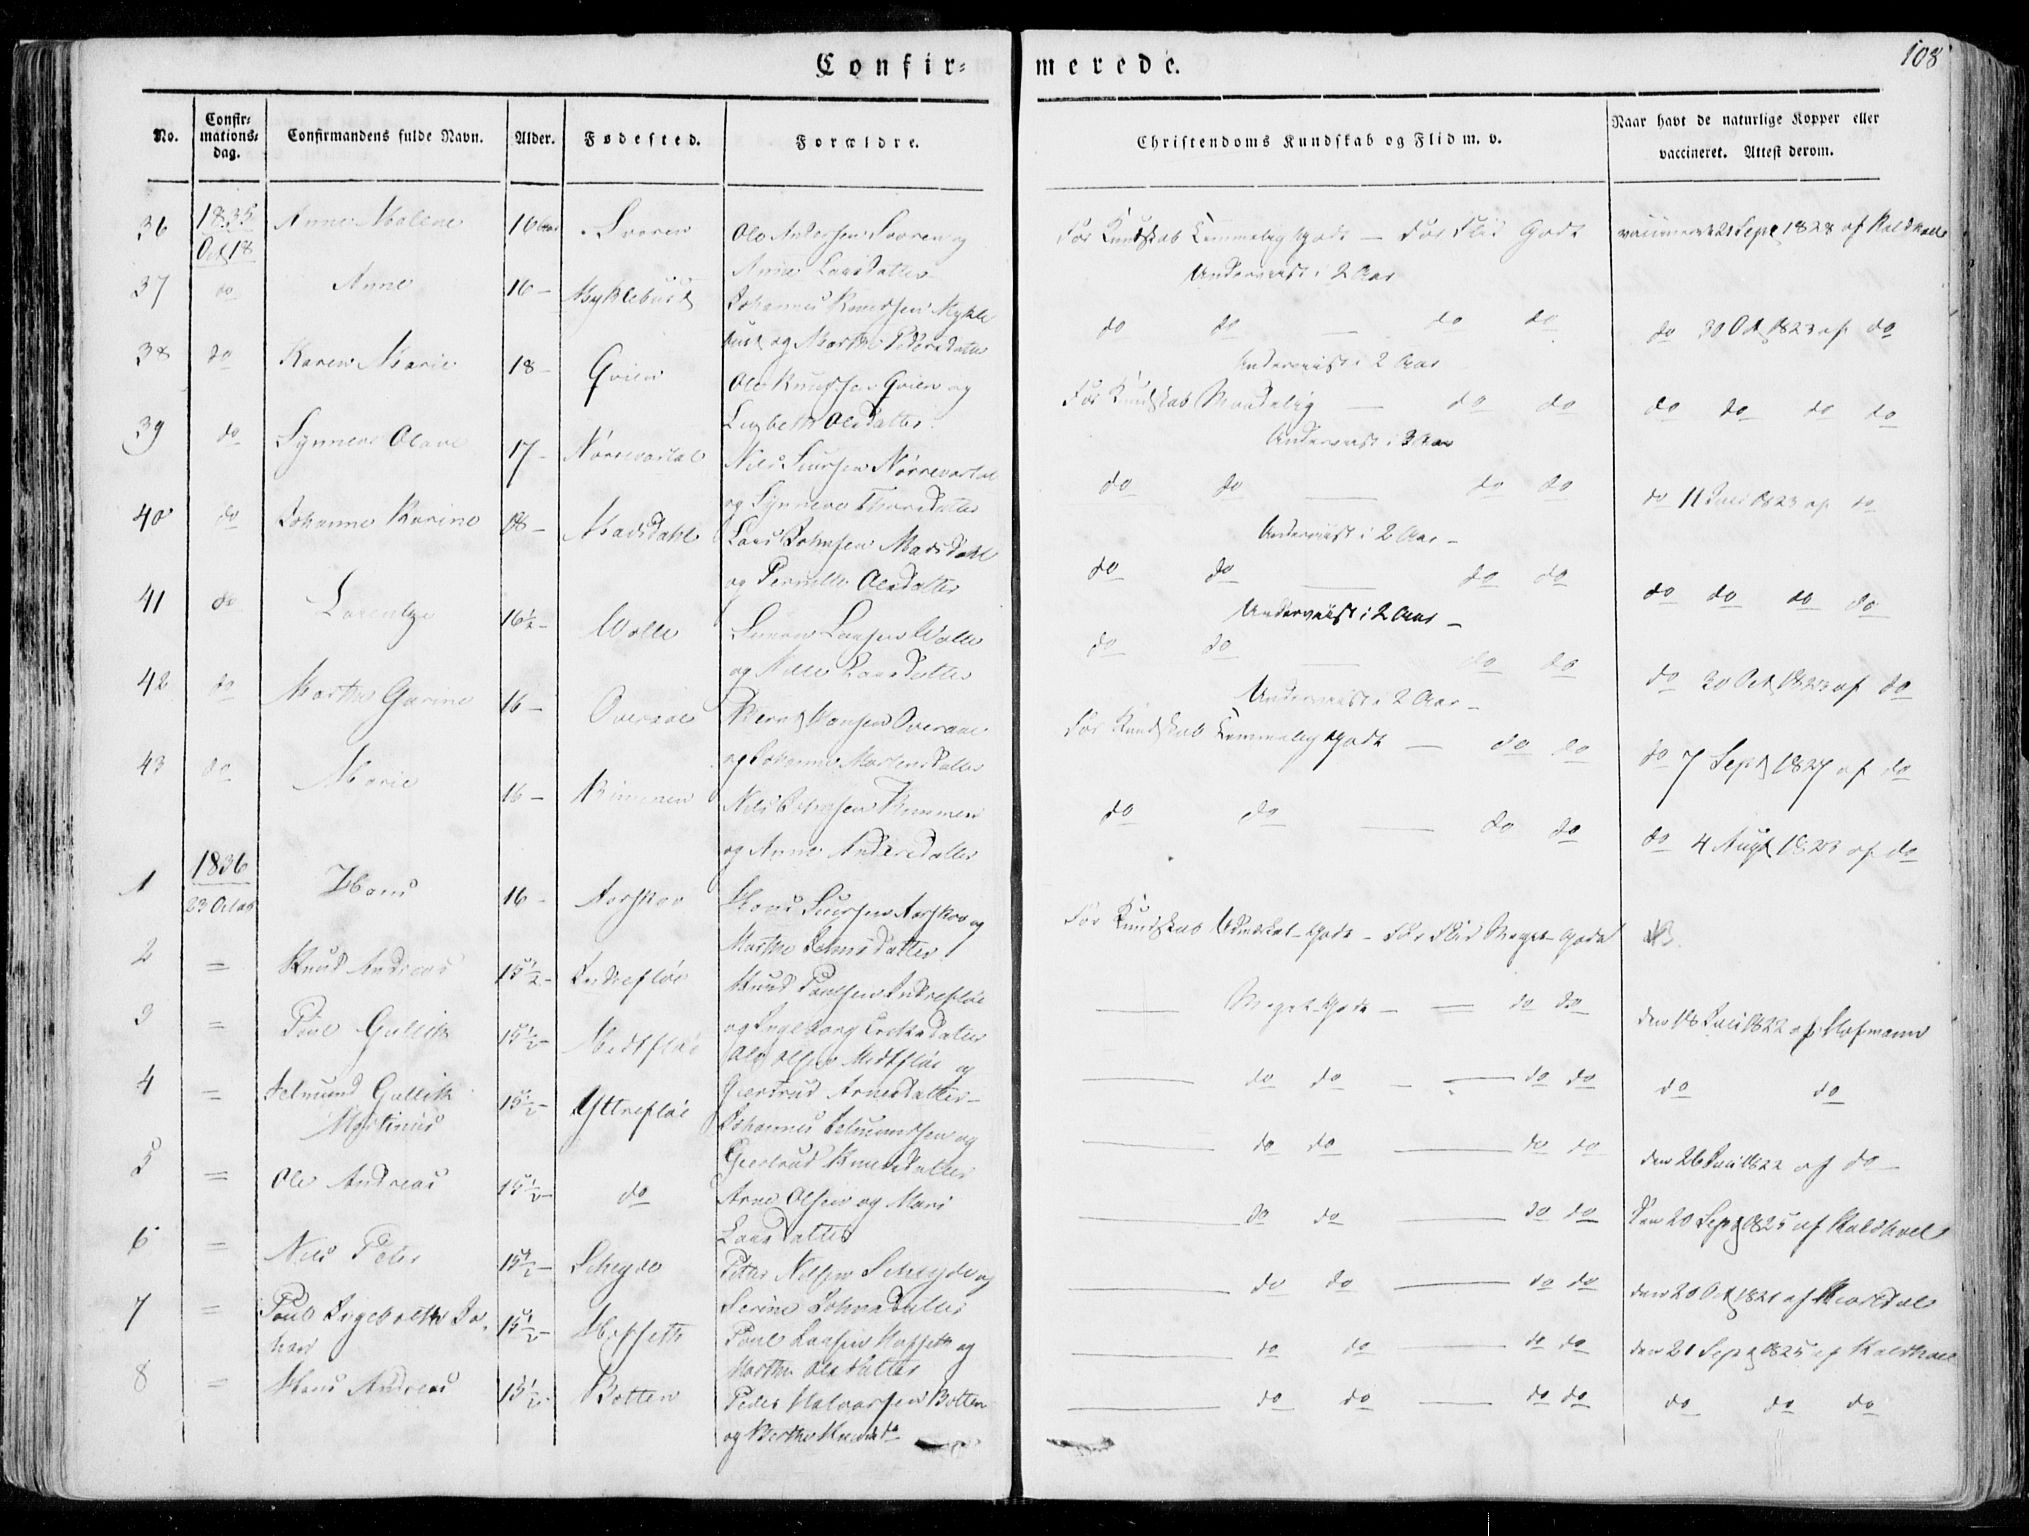 108
Confir- merede.
No. Confirmations-dag. Confirmandens fulde Navn. Alder. Fødested. Forældre. Christendoms Kundskab og Flid m. v. Naar havt de naturlige Kopper eller vaccineret. Attest derom.
36 1835 Oct 18 Anne Malene 16 Aar Svoren Ole Andersen Svoren og For Kundskab Temmelig Godt — For Flid Godt vaccineret 21 Sept 1828 af Kaldhoel
Anne Larsdatter Underviist i 2 Aar
37 do Anne 16 — Myklebust Johannes Knudsen Mykle
bust og Marthe Pedersdatter do do — do do do 30 Oct 1823 af do
Underviist i 2 Aar
38 do Karen Marie 18 — Qvien Ole Knudsen Qvien og For Kundskab Maadelig — do do do do do do
Lisbeth Olsdatter Underviist i 3 Aar
39 do Synneve Olave 17 — Nørrevartal Nils Siursen Nørrevartal do do — do do do 11 Juli 1823 af do
og Synneve Thoresdatter Underviist i 2 Aar —
40 do Johanne Karine 18 — Madsdahl Lars Johnsen Madsdahl do do — do do do do do do
og Pernille Olsdatter Underviist i 2 Aar —
41 do Lorentze 16½ — Wolle Simon Larsen Wolle do do — do do do 30 Oct 1823 af do
og Nille Larsdatter Underviist i 2 Aar —
42 do Marthe Gurine 16 — Overaae Bernt Hansen Overaae For Kundskab Temmelig Godt — do do do 7 Sept 1827 af do
og Johanne Mortensdatter
43 do Marie 16 — Rimmen Nils Johnsen Rimmen do do — do do do 4 Augt 1823 af do
og Anne Andersdatter
1836
1 23 Octob Hans 16 — Aarskov Hans Siursen Aarskov og For Kundskab Udmærket Godt — For Flid Meget Godt NB.
Marthe Johnsdatter
2 = Knud Andreas 15½ — Indrefløe Knud Poulsen Indrefløe — Meget Godt — = do do den 18 Juli 1822 af Hofmann
og Ingeborg Eriksdatter
3 = Poul Gullik 15½ Midtfløe Ole Olsen Midtfløe og — do do — — do do do do
Gjertrud Arnesdatter —
4 = Gullik 15½ — Yttrefløe Johannes og — do do — do do den 26 Juli 1822 af do —
Martinus Gjertrud Knudsdatter
5 = Ole Andreas 15½ — do Arne Olsen og Mari — do do — do do Den 20 Sept 1825 af Kaldhoel
Larsdatter
6 = Nils Peter 15½ — Scheyde Peter Nilsen Scheyde og — do do — do do den 20 Oct 1821 af
Serine Johnsdatter
7 = Poul Ingebrigt Jo- 15½ — Hopseth Poul Larsen Hopseth og — do do — do do den 21 Sept 1825 af Kaldhoel
han Marthe Olsdatter
8 = Hans Andreas 15½ — Botten Peder Halvorsen Botten — do do — do do do do do
og Berthe Knudsd.